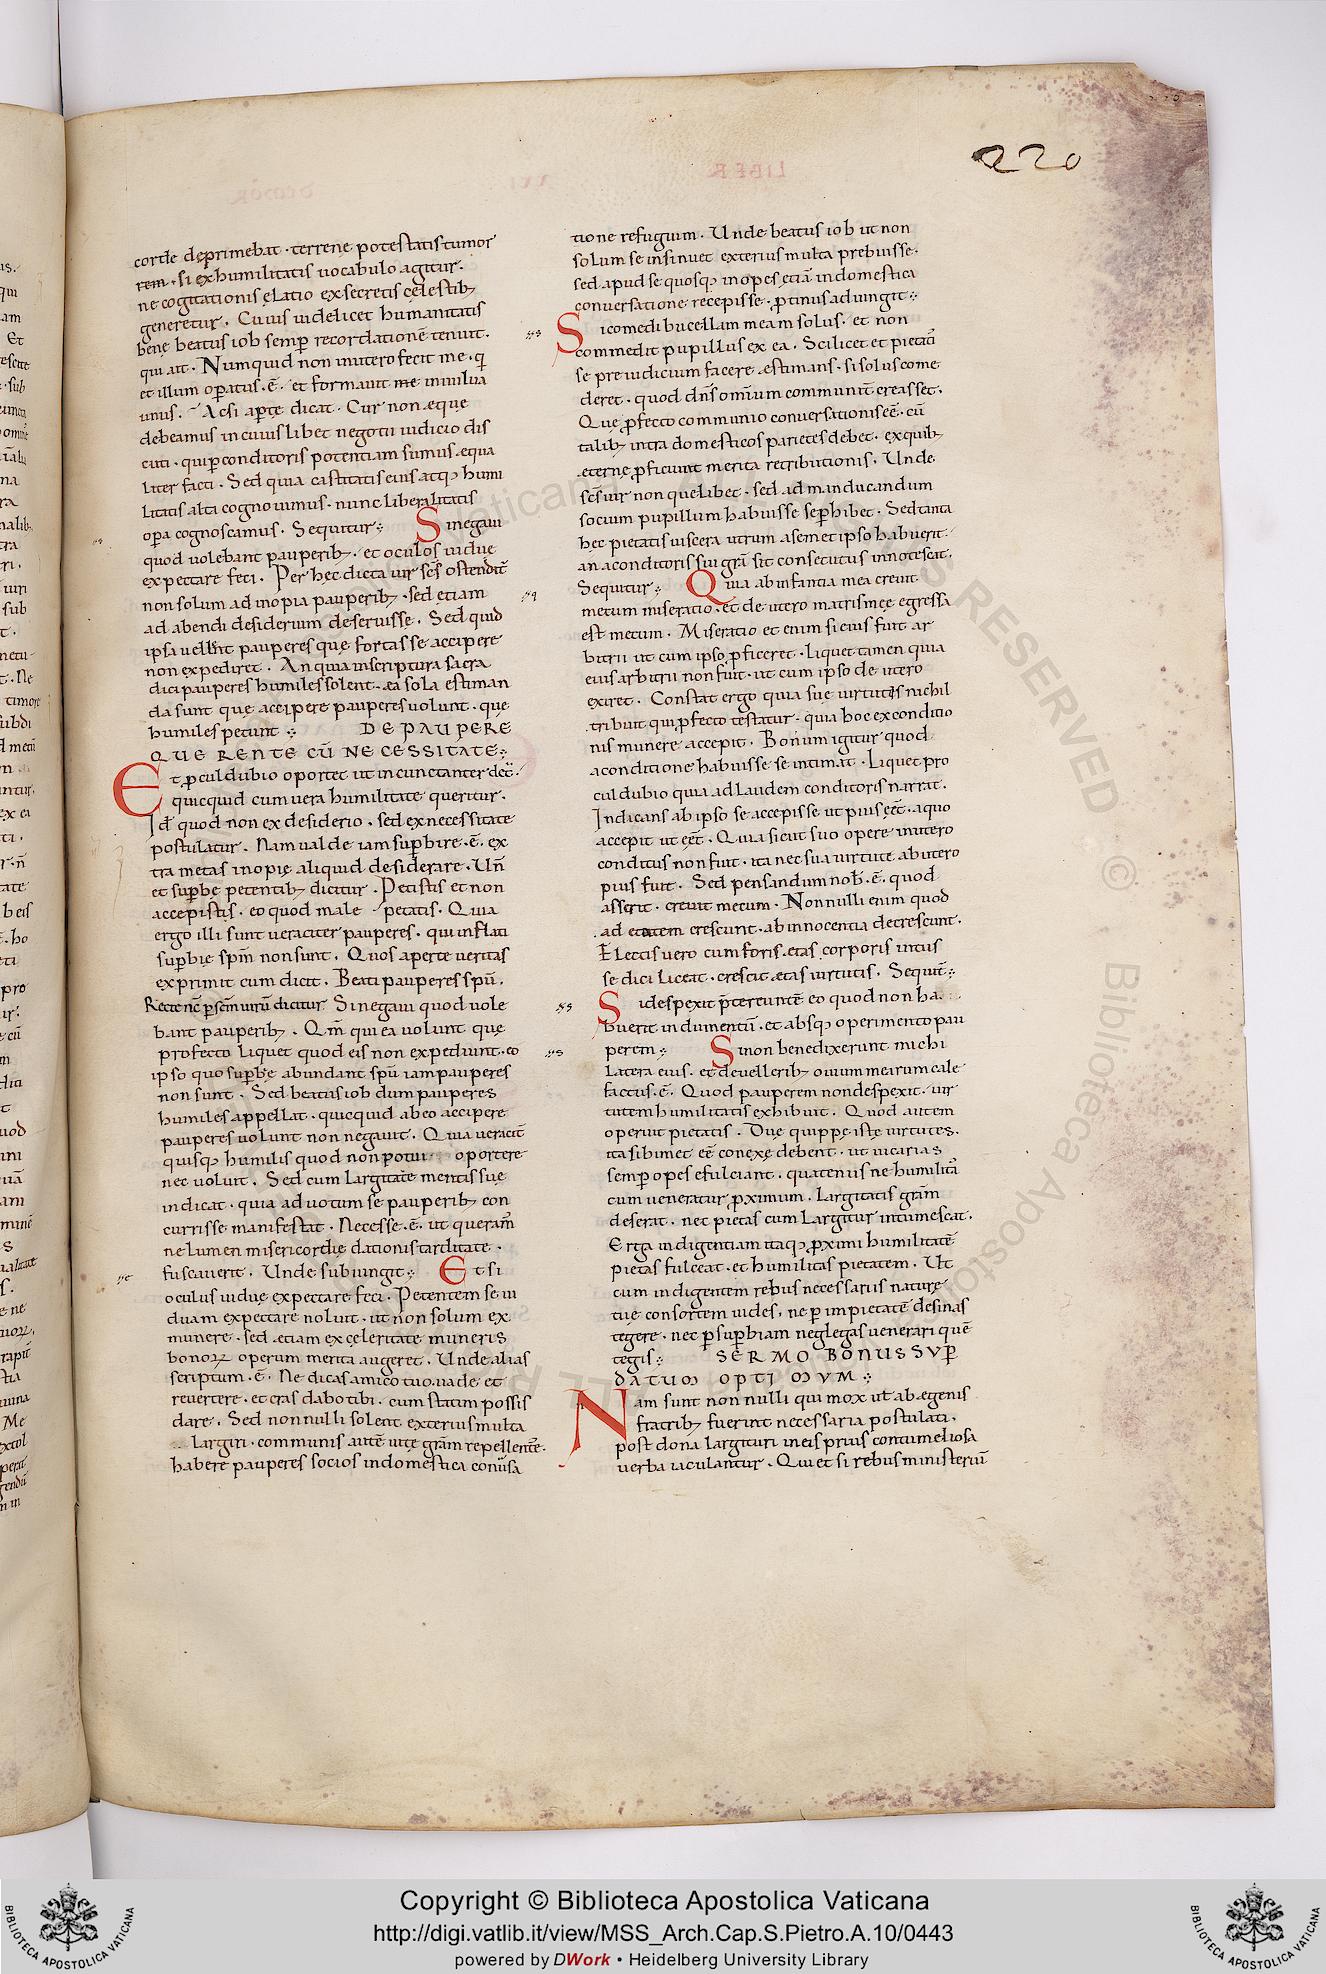 220
corde dęprimebat · terrenę potestatis tumor
rem · si ex humilitatis uocabulo agitur ·
ne cogitationis ęlatio ex secretis cęlestib;
generetur . Cuius uidelicet humanitatis
bene beatus iob semp̱ recordationē tenuit .
qui ait . Numquid non inutero fecit me · q̇
et illum op̱atus . ē . et formauit me inuulua
unus . Ac si ap̱te dicat . Cur non ęque
debeamus in cuius libet negotii iudicio dis
cuti · qui p̱ conditoris potentiam sumus ęqua
liter facti . Sed quia castitatis eius atq; humi
litatis alta cognouimus · nunc liberalitatis
op̱a cognoscamus . Sequitur : Si negaui
quod uolebant pauperib; · et oculos uiduę
expectare feci . Per hęc dicta uir sc̄s ostendit̄
non solum ad inopia pauperib; · sed etiam
ad abendi desiderium deseruisse . Sed quid
ipsa uellent pauperes que fortasse accipere
non expediret . An quia in scriptura sacra
dici pauperes humiles solent · ea sola estiman
da sunt quę accipere pauperes uolunt · quę
humiles petunt : DE PAUPERE
QUERENTE CŪ NECESSITATE :
Et p̱cul dubio oportet ut incunctanter det̄ ·
quicquid cum uera humilitate queritur .
Id̄ quod non ex desiderio · sed ex necessitate
postulatur . Nam ualde iam sup̱bire . ē . ex
tra metas inopię aliquid desiderare . Un̄
et sup̱bę petentib; dicitur . Petistis et non
accepistis · eo quod male petatis . Quia
ergo illi sunt ueraciter pauperes · qui inflati
sup̱bię spm̄ non sunt . Quos aperte ueritas
exprimit cum dicit . Beati pauperes spū .
Recte nc̄ p̱ sc̄m uirū dicitur Si negaui quod uole
bant pauperib; . Qm̄ qui ea uolunt quę
profecto liquet quod eis non expediunt · eo
ipso quo sup̱bę abundant spū iam pauperes
non sunt . Sed beatus iob dum pauperes
humiles appellat · quicquid ab eo accipere
pauperes uolunt non negauit . Quia ueracit̄
quisq; humilis quod non potuit oportere
nec uoluit . Sed cum largitate mentis suę
indicat · quia ad uotum se pauperib; con
currisse manifestat . Necesse . ē . ut queram̄
ne lumen misericordię dationis tarditate ·
fuscauerit . Unde subiungit : Et si
oculus uiduę expectare feci . Petentem se ui
duam expectare noluit · ut non solum ex
munere · sed etiam ex celeritate muneris
bonoꝝ operum merita augeret . Unde alias
scriptum . ē . Ne dicas amico tuo · uade et
reuertere · et cras dabo tibi · cum statim possis
dare . Sed non nulli solent exterius multa
largiri · communis autē uitę grām repellentēs
habere pauperes socios in domestica conusa
tione refugium . Unde beatus iob ut non
solum se insinuet exterius multa prebuisse ·
sed apud se quosq; inopes etiā in domestica
conuersatione recepisse · p̱tinus adiungit :
Si comedi bucellam meam solus · et non
commedit pupillus ex ea . Scilicet et pietati
se preiudicium facere ęstimans · si solus come
deret · quod dn̄s omnium communit̄ creasset .
Quę p̱fecto communio conuersationis eē · cū
talib; intra domesticos parietes debet · ex quib;
ęternę p̱ficiunt merita retributionis . Unde
sc̄s uir non quelibet · sed ad manducandum
socium pupillum habuisse se p̱hibet . Sed tanta
hec pietatis uiscera utrum a semet ipso habuerit ·
an a conditoris sui grā sit consecutus innotescit .
Sequitur : Quia ab infantia mea creuit
mecum miseratio · et de utero matris meę egressa
est mecum . Miseratio et enim si eius fuit ar
bitrii ut cum ipso p̱ficeret · liquet tamen quia
eius arbitrii non fuit · ut cum ipso de utero
exiret . Constat ergo quia suę uirtutis nichil
tribuit qui p̱fecto testatur · quia hoc ex conditio
nis munere accepit . Bonum igitur quod
a conditione habuisse se intimat · liquet pro
cul dubio quia ad laudem conditoris narrat .
Indicans ab ipso se accepisse ut pius eēt · a quo
accepit ut eēt . Quia sicut suo opere inutero
conditus non fuit · ita nec sua uirtute ab utero
pius fuit . Sed pensandum nob̄ . ē . quod
asserit · creuit mecum . Non nulli enim quod
ad etatem crescunt · ab innocentia decrescunt .
Electis uero cum foris ętas corporis intus
se dici liceat · crescit ętas uirtutis . Sequit̄ :
Si despexit p̄tereuntē eo quod non ha
buerit indumentū · et absq; operimento pau
perem : Si non benedixerunt michi
latera eius · et de uellerib; ouium mearum cale
factus . ē . Quod pauperem non despexit · uir
tutem humilitatis exhibuit . Quod autem
operuit pietatis . Duę quippe istę uirtutes ·
ita sibimet eē conexę debent · ut uicarias
semp̱ opes efulciant · quatenus ne humilitas
cum ueneratur p̱ximum · largitatis grām
deserat · nec pietas cum largitur intumescat .
Erga indigentiam itaq; p̱ximi humilitatē
pietas fulceat · et humilitas pietatem . Ut
cum indigentem rebus necessariis naturę
tuę consortem uides · ne p̱ impietatē desinas
tegere · nec p̱ sup̱biam neglegas uenerari quē
tegis : SERMO BONUS SUP̱
DATUM OPTIMUM :
Nam sunt non nulli qui mox ut ab egenis
fratrib; fuerint necessaria postulati ·
post dona largituri in eis prius contumeliosa
uerba iaculantur . Qui et si rebus ministeriū
Copyright © Biblioteca Apostolica Vaticana
http://digi.vatlib.it/view/MSS_Arch.Cap.S.Pietro.A.10/0443
powered by DWork • Heidelberg University Library